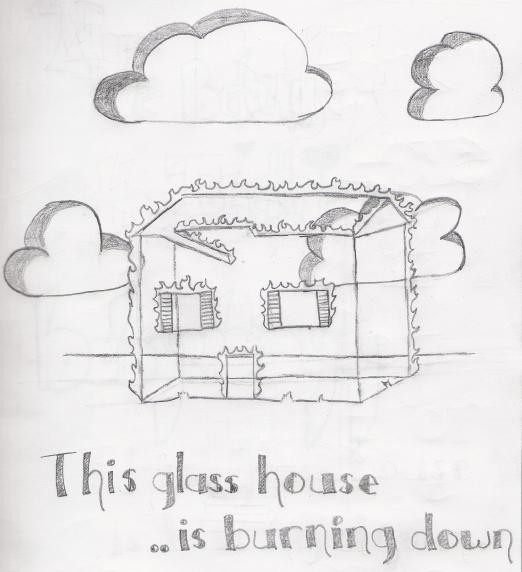 This glass house
..is burning down